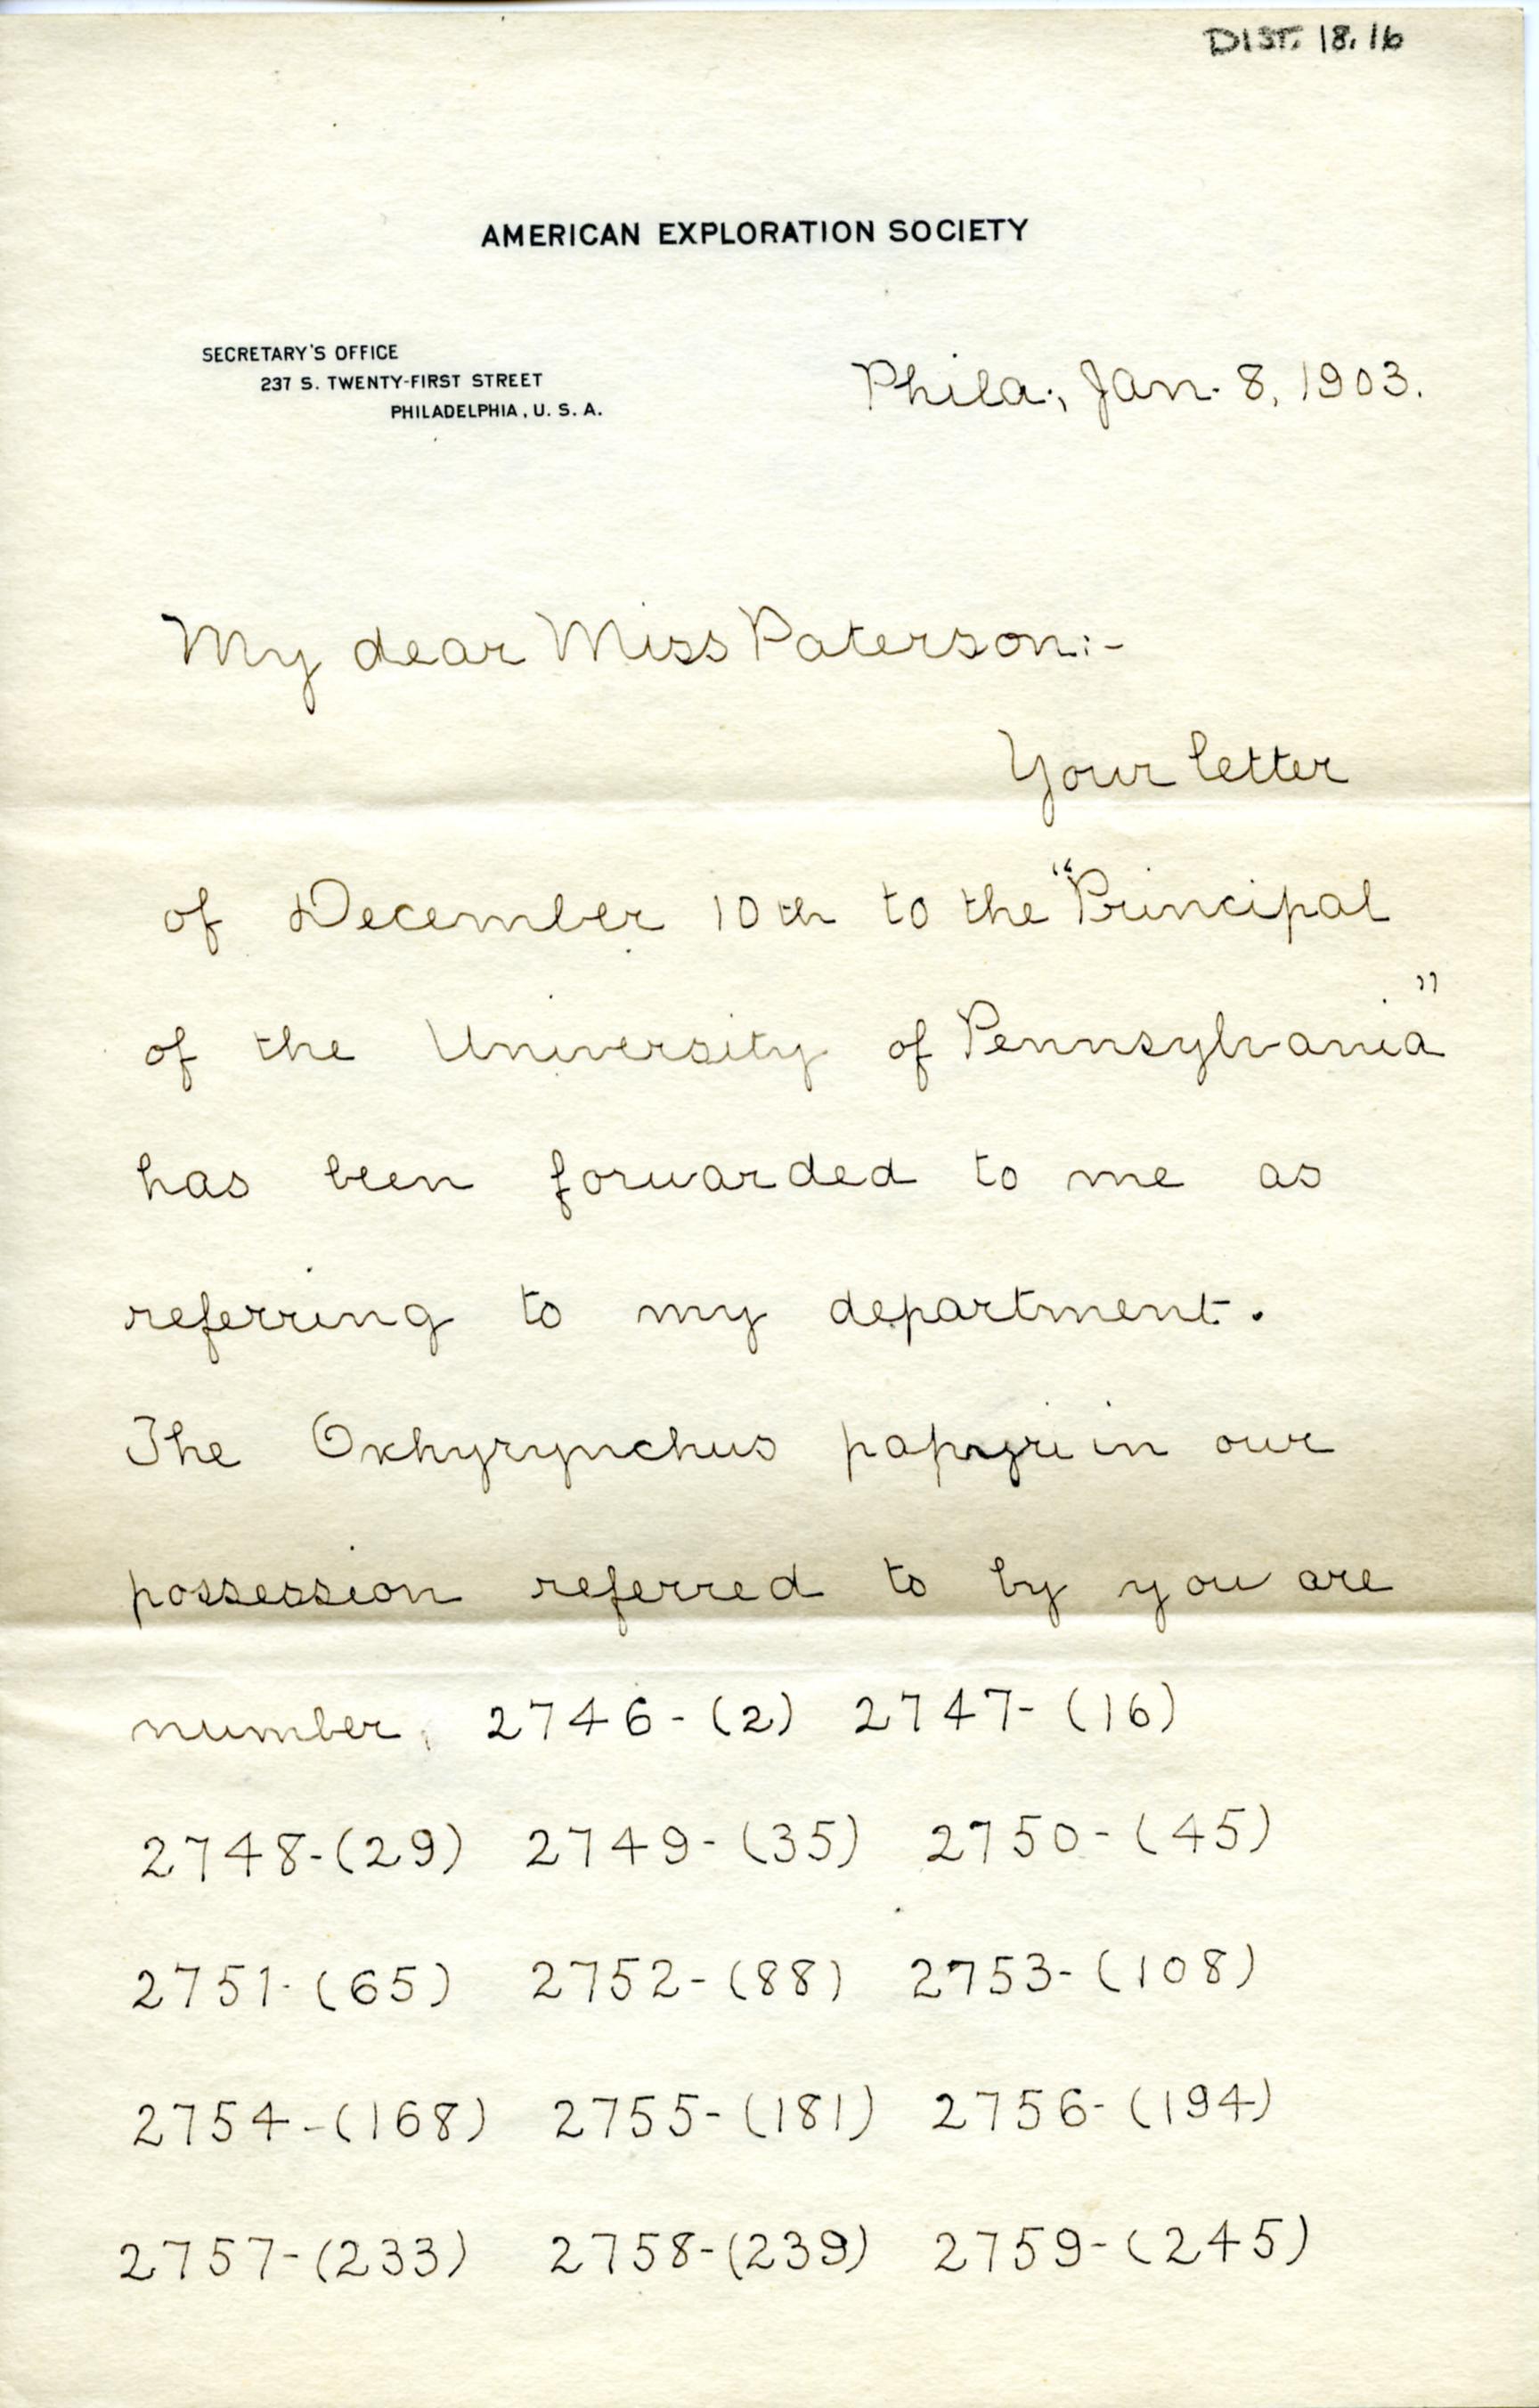 DIST. 18.16
AMERICAN EXPLORATION SOCIETY
SECRETARY'S OFFICE
237 S. TWENTY-FIRST STREET
PHILADELPHIA, U. S. A.
Phila., Jan. 8, 1903.
My dear Miss Paterson:-
Your letter
of December 10th to the "Principal
of the University of Pennsylvania"
has been forwarded to me as
referring to my department.
The Oxhyrynchus papyri in our
possession referred to by you are
number, 2746-(2) 2747-(16)
2748-(29) 2749-(35) 2750-(45)
2751-(65) 2752-(88) 2753-(108)
2754-(168) 2755-(181) 2756-(194)
2757-(233) 2758-(239) 2759-(245)